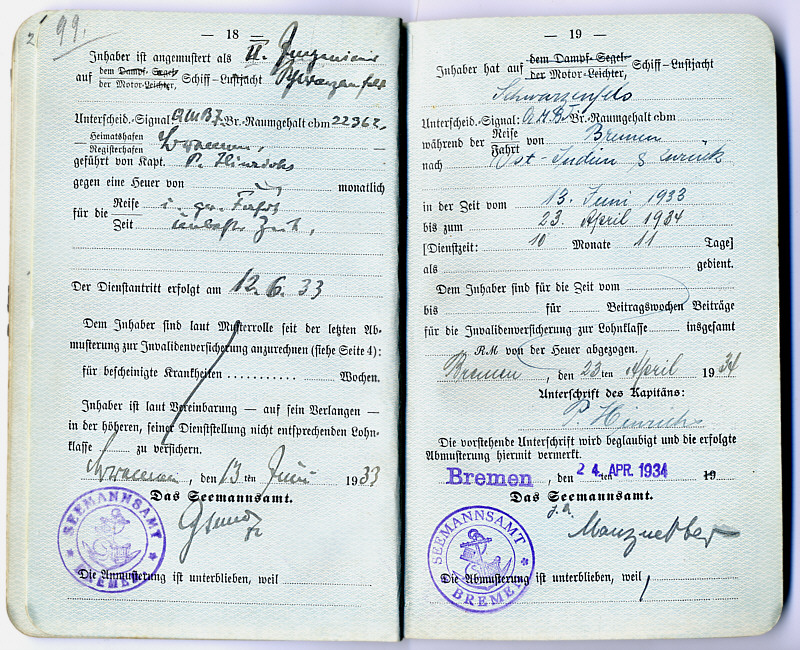 99.
— 18 —
Inhaber ist angemustert als II. Ingenieur
auf dem Dampf- Segel- der Motor-Leichter, Schiff-Lustjacht Schwarzenfels
Unterscheid.-Signal: Br.-Raumgehalt cbm 22362,
Heimatshafen Registerhafen Bremen,
geführt von Kapt. P. Hinrichs
gegen eine Heuer von monatlich
für die Reise Zeit i. gr. Fahrt
unbest. Zeit,
Der Dienstantritt erfolgt am 12. 6. 33
Dem Inhaber sind laut Musterrolle seit der letzten Ab-
musterung zur Invalidenversicherung anzurechnen (siehe Seite 4):
für bescheinigte Krankheiten .......... Wochen.
Inhaber ist laut Vereinbarung — auf sein Verlangen —
in der höheren, seiner Dienststellung nicht entsprechenden Lohn-
klasse zu versichern.
Bremen, den 13ten Juni 1933
Das Seemannsamt.
SEEMANNSAMT BREMEN
Die Anmusterung ist unterblieben, weil
— 19 —
Inhaber hat auf dem Dampf- Segel- der Motor-Leichter, Schiff-Lustjacht
Schwarzenfels
Unterscheid.-Signal: Br.-Raumgehalt cbm
während der Reise Fahrt von Bremen
nach Ost-Indien & zurück
in der Zeit vom 13. Juni 1933
bis zum 23. April 1934
[Dienstzeit: 10 Monate 11 Tage]
als gedient.
Dem Inhaber sind für die Zeit vom
bis für Beitragswochen Beiträge
für die Invalidenversicherung zur Lohnklasse insgesamt
RM von der Heuer abgezogen.
Bremen, den 23ten April 1934
Unterschrift des Kapitäns:
P. Hinrichs
Die vorstehende Unterschrift wird beglaubigt und die erfolgte
Abmusterung hiermit vermerkt.
Bremen, den 24. APR. 1934 ten 19
Das Seemannsamt.
SEEMANNSAMT BREMEN
Die Abmusterung ist unterblieben, weil